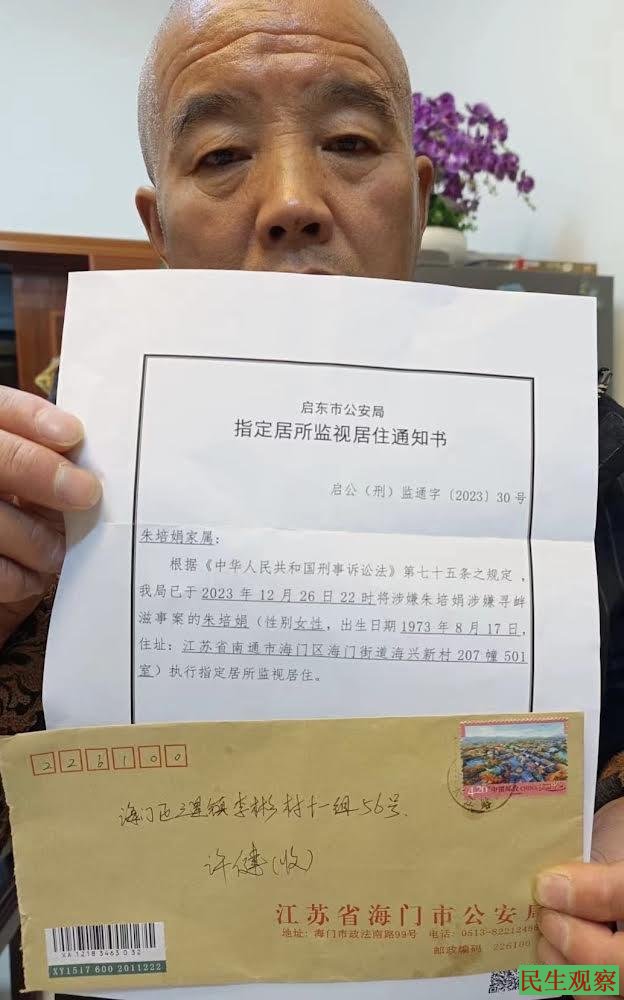 启东市公安局
指定居所监视居住通知书
启公（刑）监通字〔2023〕30号
朱培娟家属：
根据《中华人民共和国刑事诉讼法》第七十五条之规定，
我局已于2023年12月26日22时将涉嫌朱培娟涉嫌寻衅
滋事案的朱培娟（性别女性，出生日期1973年8月17日，
住址：江苏省南通市海门区海门街道海兴新村207幢501
室）执行指定居所监视居住。
226100
4.20 中国邮政 CHINA
海门区三星镇李彬村十一组56号.
许健（收）
江苏省海门市公安局
地址：海门市政法南路99号 电话：0513-8221248
邮政编码 226100
XA 1218 3463 0 32
XY1517 600 2011222
民生观察